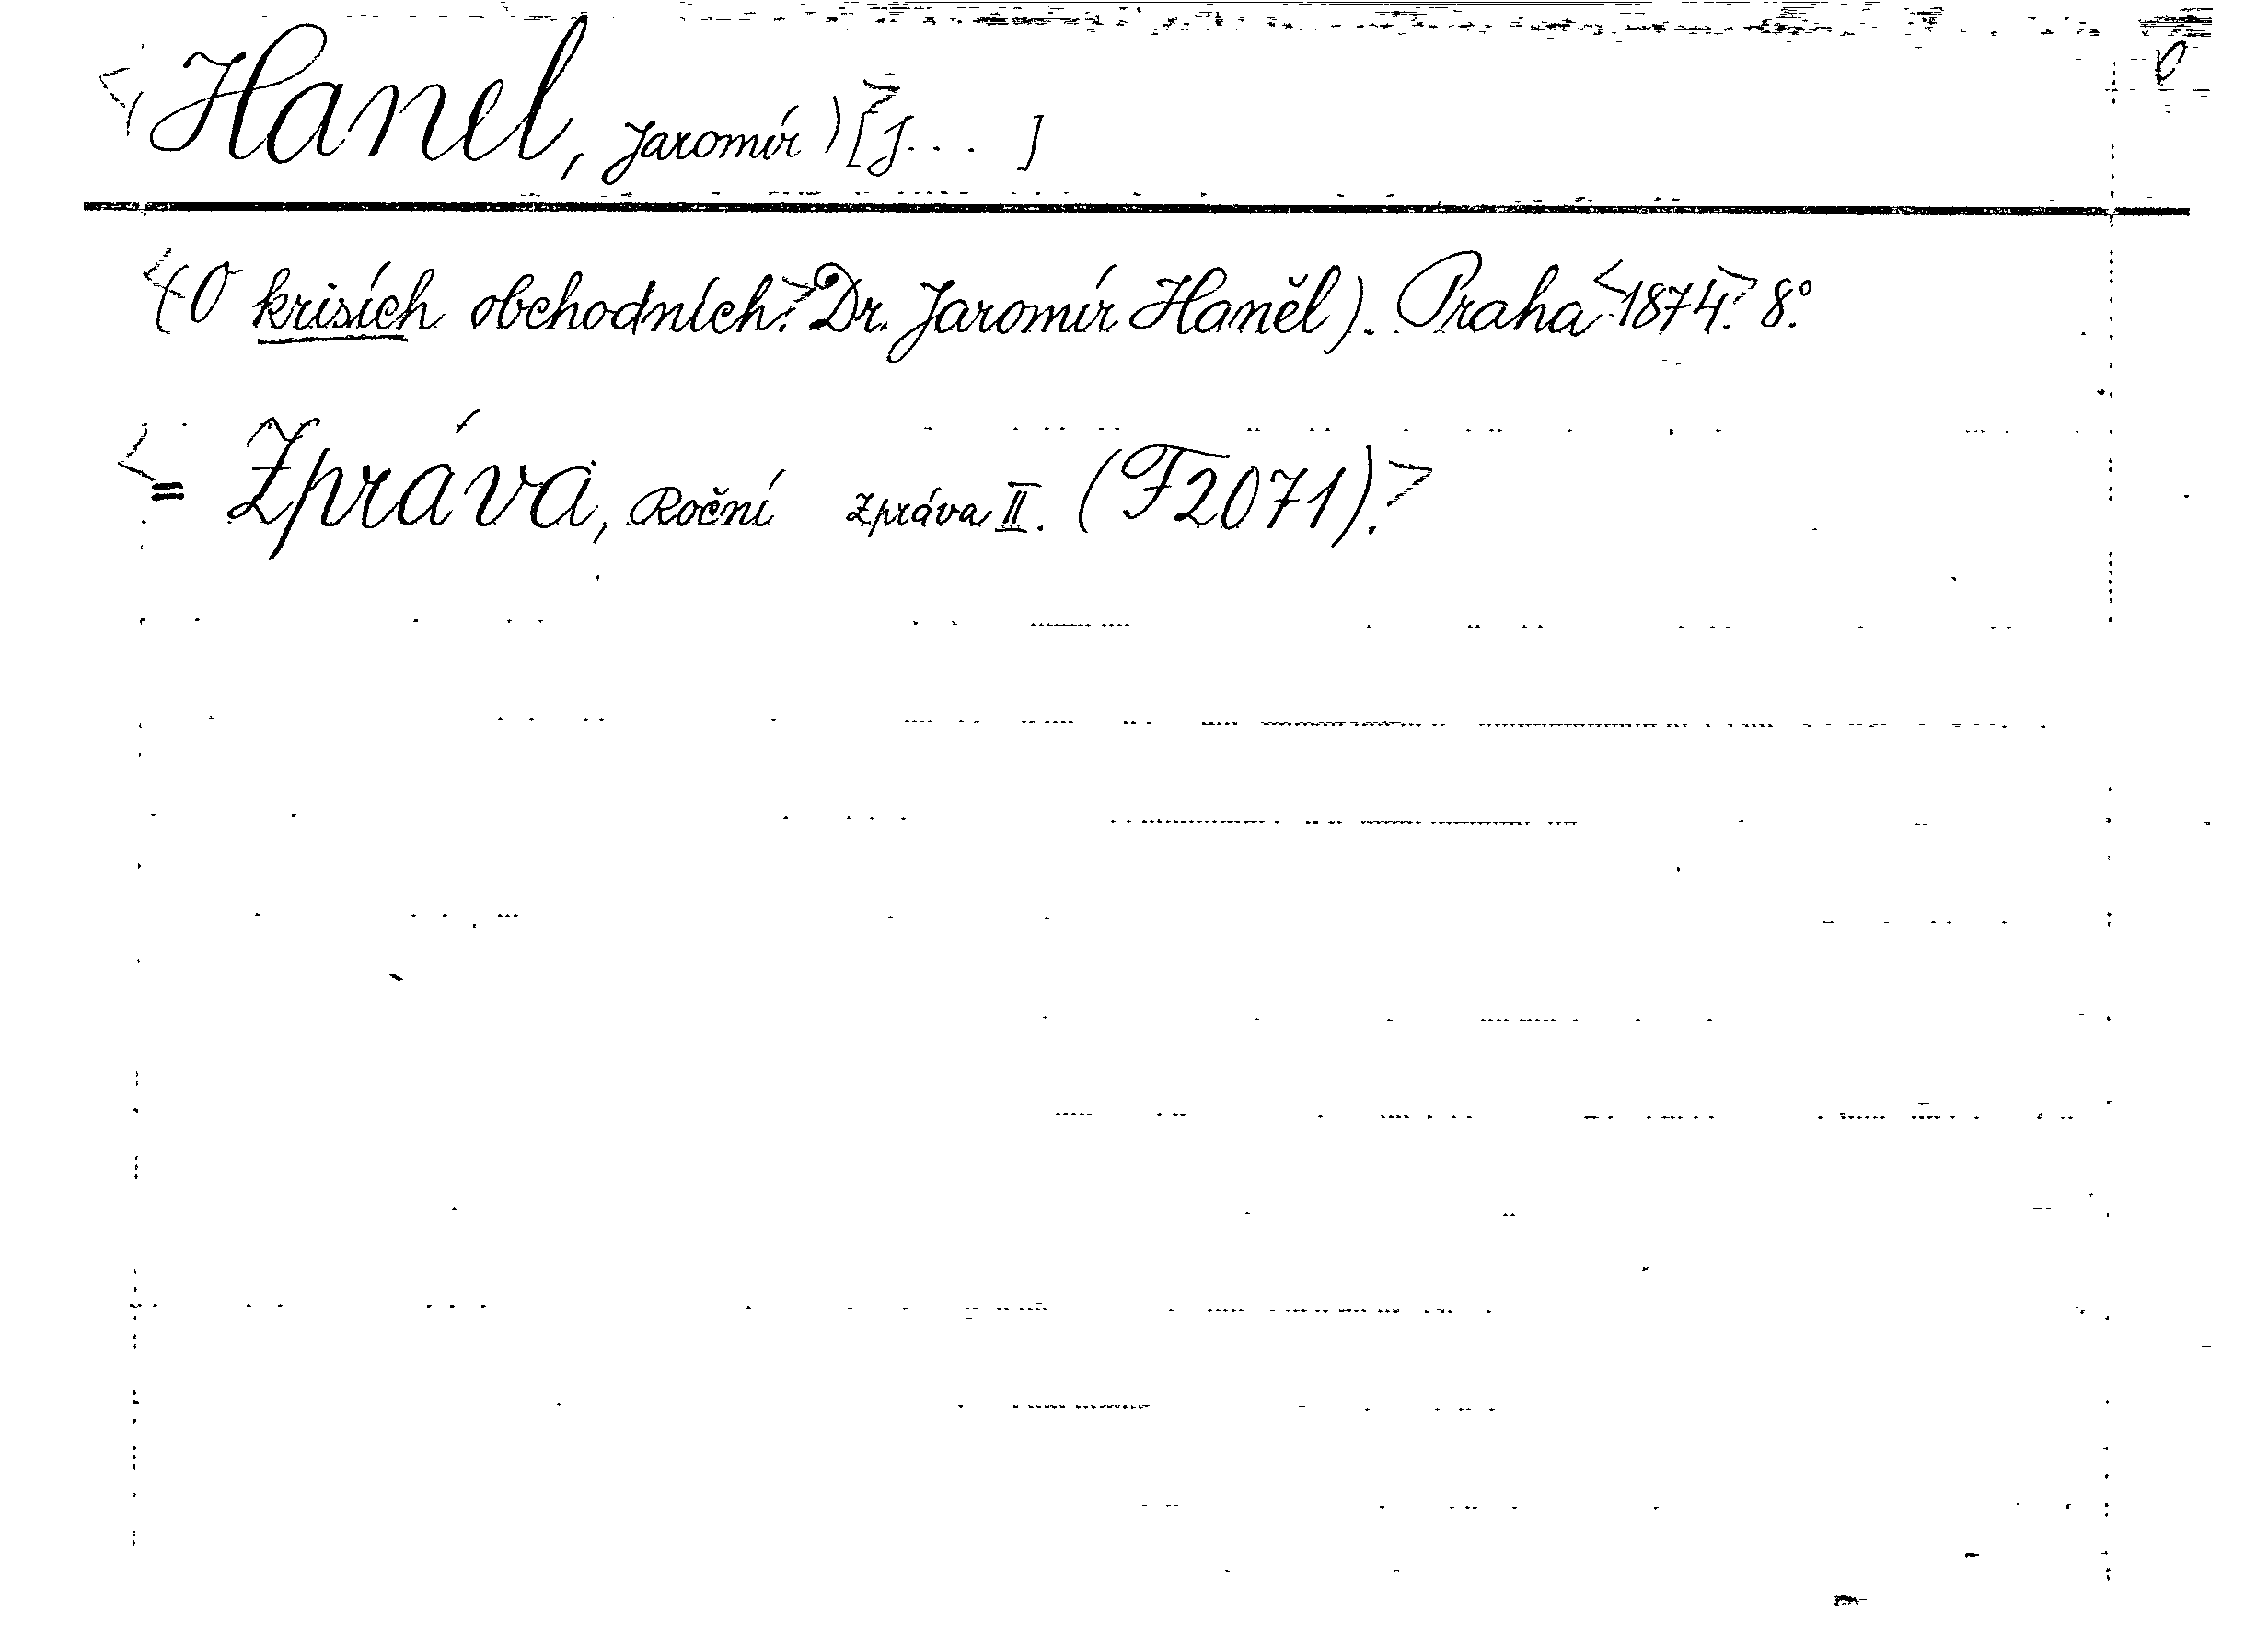 <(Hanel, Jaromír)> [J... ]
<(O krisích obchodních.> Dr. Jaromír Haněl). Praha <1874.> 8.°
<= Zpráva, Roční zpráva II. (F2071).>